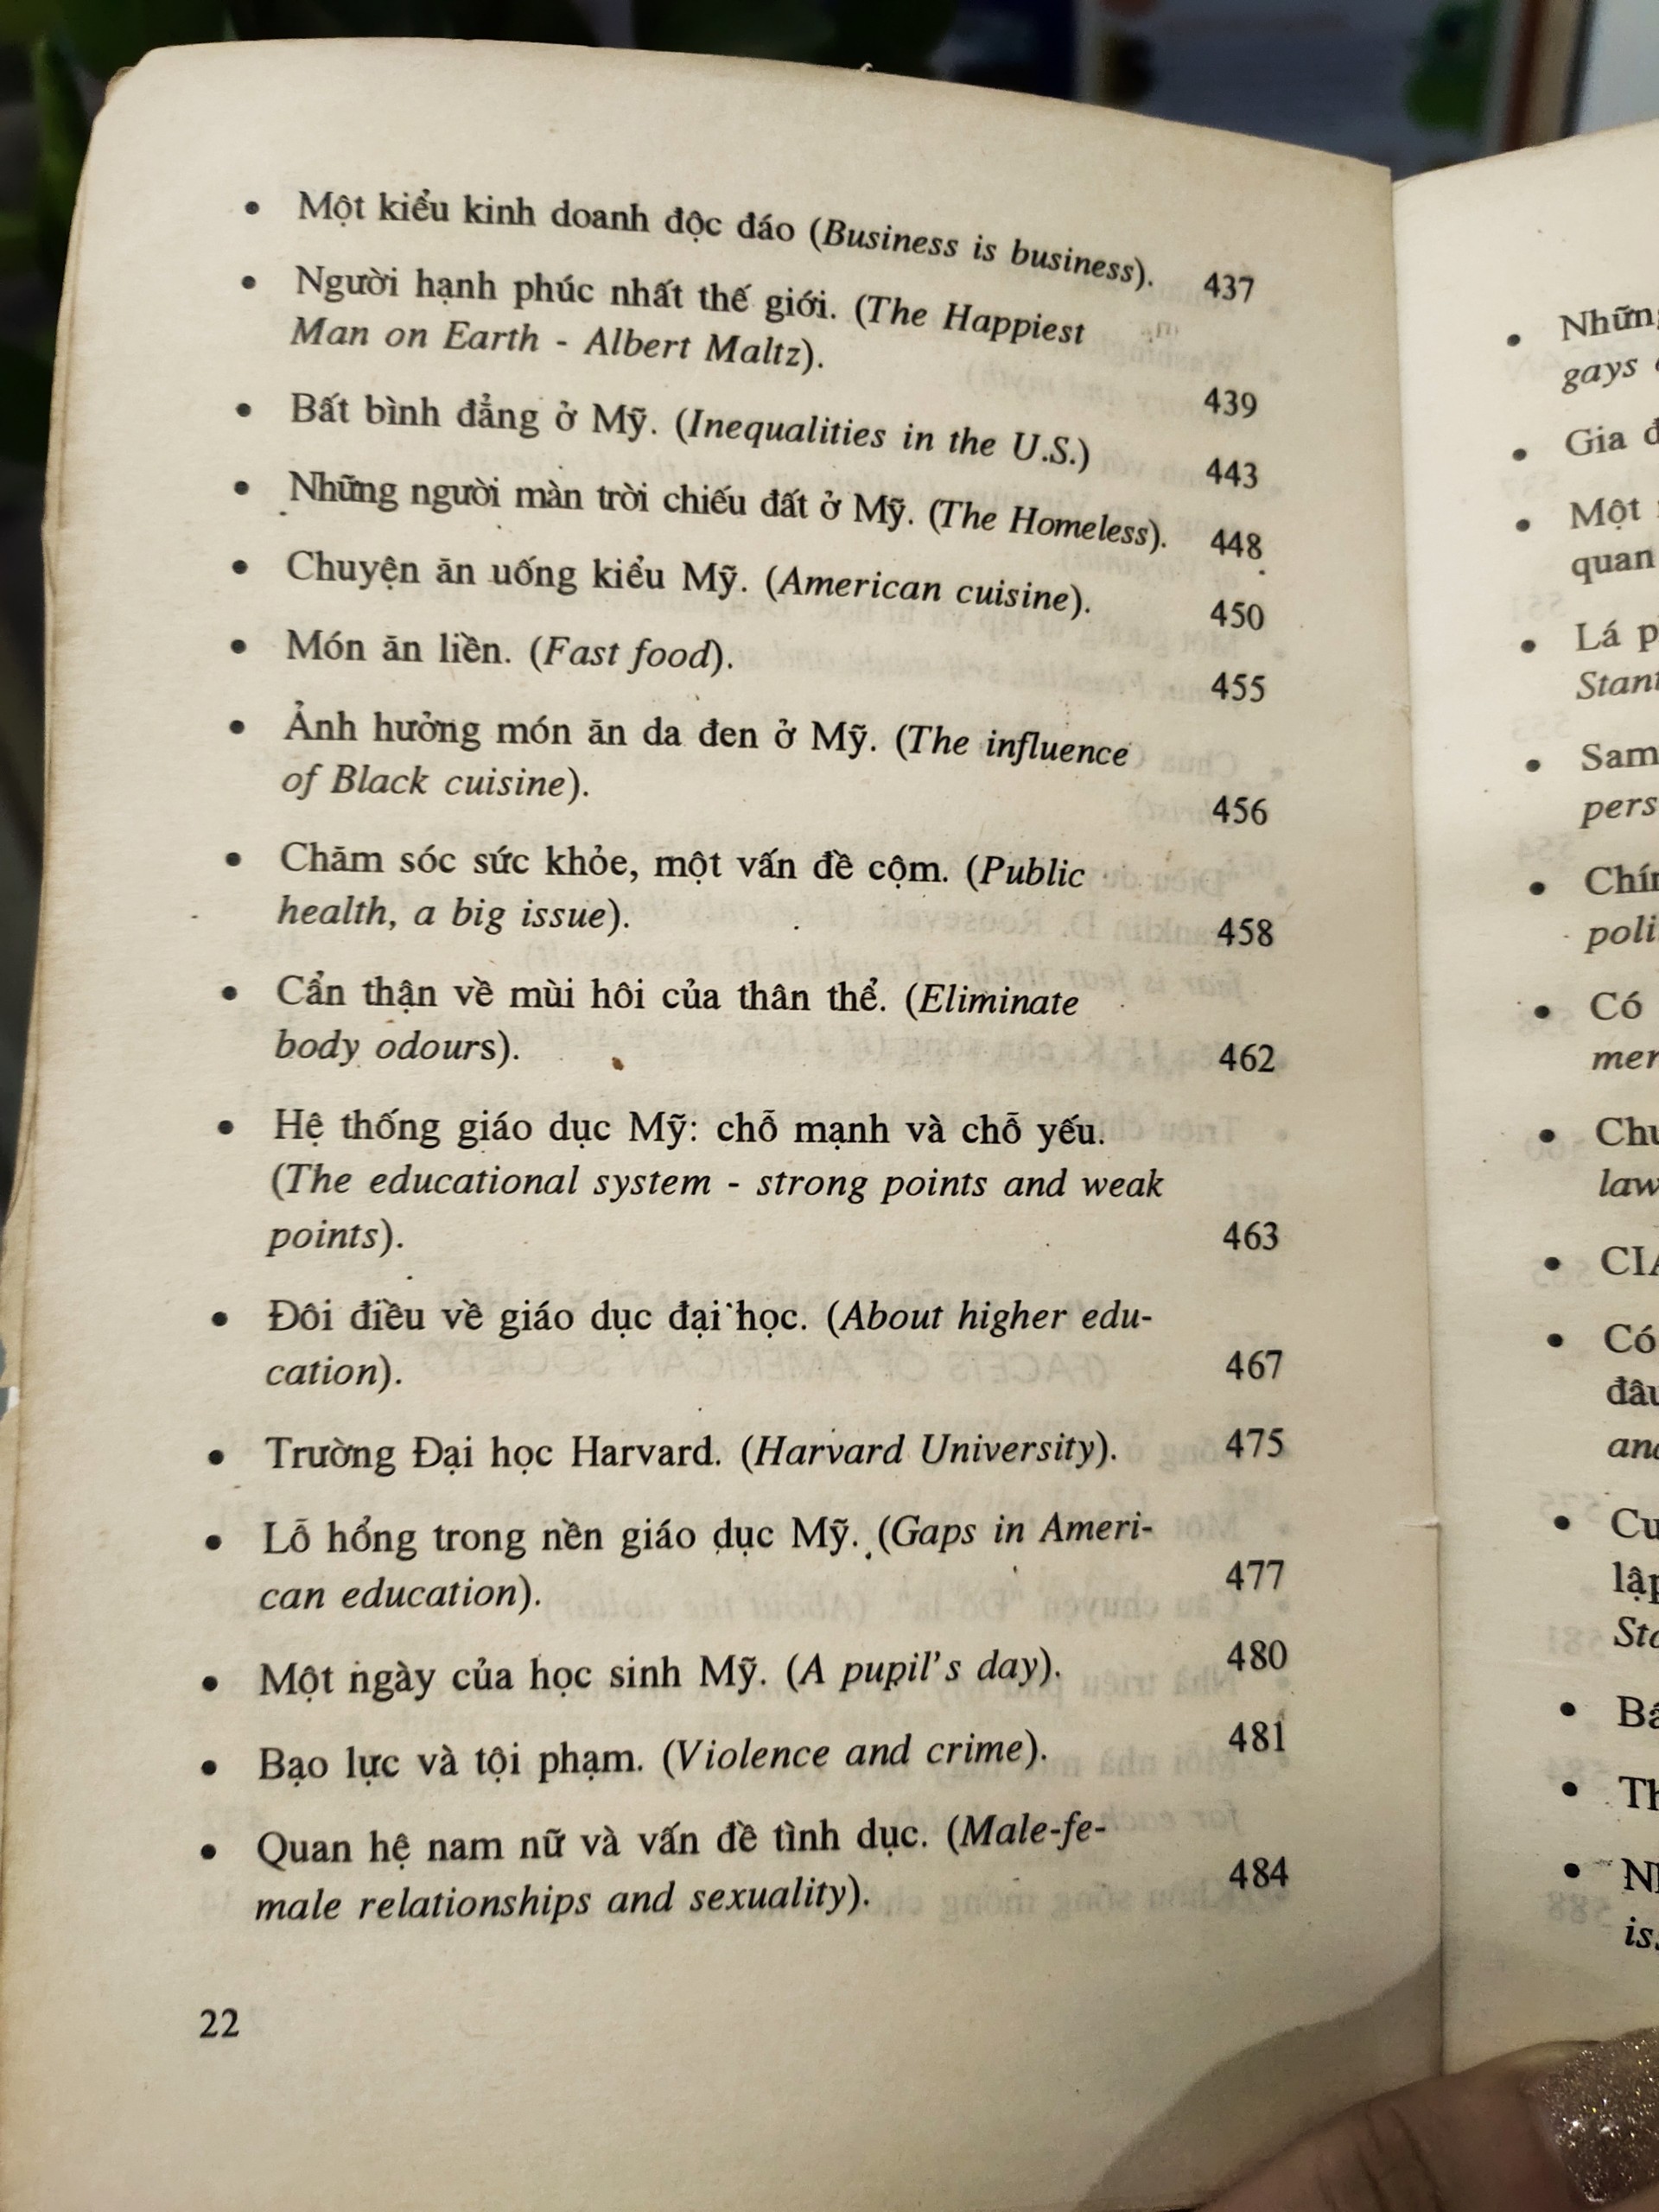 • Một kiểu kinh doanh độc đáo (Business is business). 437
• Người hạnh phúc nhất thế giới. (The Happiest
Man on Earth - Albert Maltz). 439
• Bất bình đẳng ở Mỹ. (Inequalities in the U.S.) 443
• Những người màn trời chiếu đất ở Mỹ. (The Homeless). 448
• Chuyện ăn uống kiểu Mỹ. (American cuisine). 450
• Món ăn liền. (Fast food). 455
• Ảnh hưởng món ăn da đen ở Mỹ. (The influence
of Black cuisine). 456
• Chăm sóc sức khỏe, một vấn đề cộm. (Public
health, a big issue). 458
• Cẩn thận về mùi hôi của thân thể. (Eliminate
body odours). 462
• Hệ thống giáo dục Mỹ: chỗ mạnh và chỗ yếu.
(The educational system - strong points and weak
points). 463
• Đôi điều về giáo dục đại học. (About higher edu-
cation). 467
• Trường Đại học Harvard. (Harvard University). 475
• Lỗ hổng trong nền giáo dục Mỹ. (Gaps in Ameri-
can education). 477
• Một ngày của học sinh Mỹ. (A pupil's day). 480
• Bạo lực và tội phạm. (Violence and crime). 481
• Quan hệ nam nữ và vấn đề tình dục. (Male-fe-
male relationships and sexuality). 484
22
•
gays
• Gia
• Một
quan
• Lá
•
•
• Có
•
•
• Có
•
•
•
•